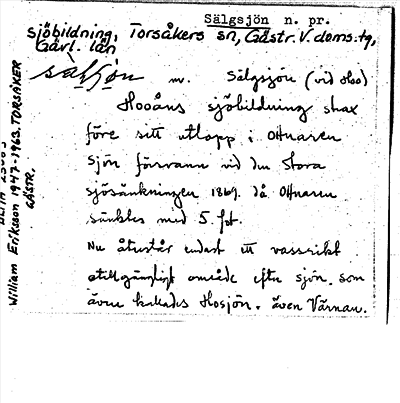 Sälgsjön n. pr.
sjöbildning, Torsåkers sn, Gästr. V. doms. tg,
Gävl. län
sàljön m. Sälgsjön (vid Hoo)
Hooåns sjöbildning strax
före sitt utlopp i Ottnaren
Sjön försvann vid den stora
sjösänkningen 1869. då Ottnaren
sänktes med 5 fot.
Nu återstår endast ett vassrikt
otillgängligt område efter sjön. som
även kallades Hosjön. även Värnan.
William Eriksson 1947-1963. TORSÅKER
GÄSTR.